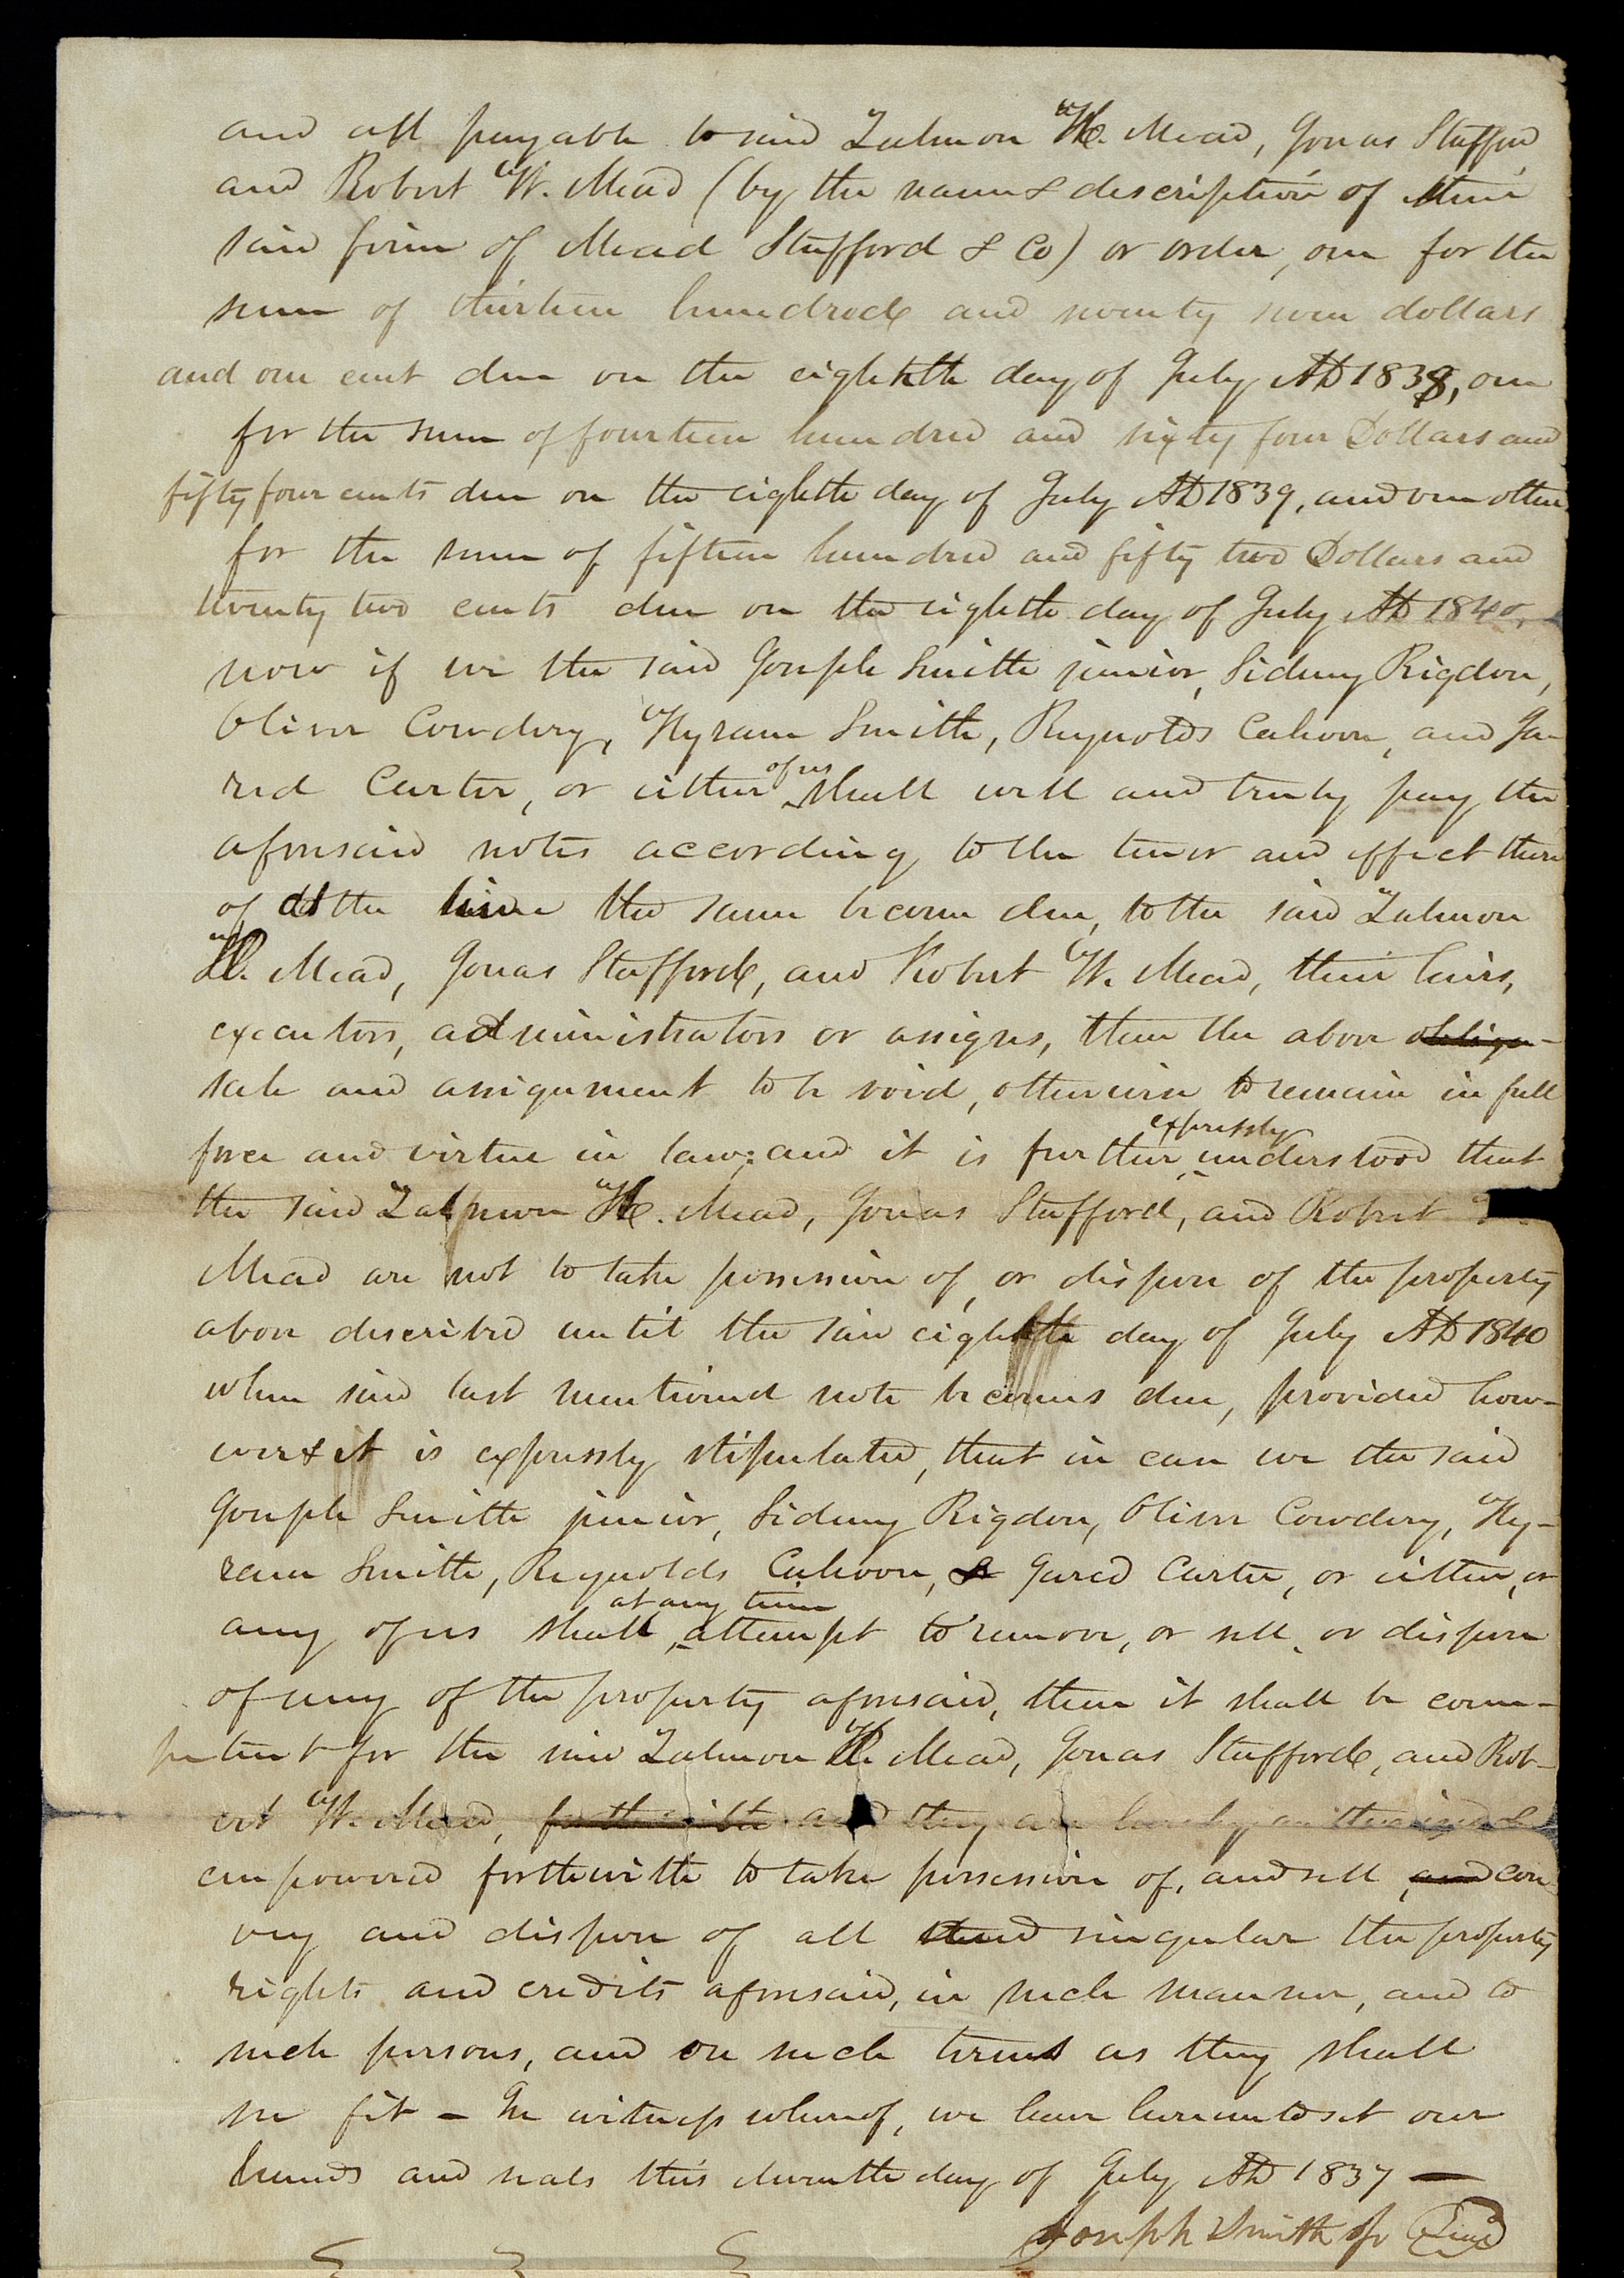 and all payable to said Zalmon H. Mead, Jonas Stafford
and Robert W. Mead (by the name & description of their
said firm of Mead Stafford & Co) or order, one for the
sum of thirteen hundred and seventy seven dollars
and one cent due on the eighth day of July AD 1838, one
for the sum of fourteen hundred and sixty four Dollars and
fifty four cents due on the eighth day of July AD 1839, and one other
for the sum of fifteen hundred and fifty two Dollars and
twenty two cents due on the eighth day of July AD 1840,
now if we the said Joseph Smith junior, Sidney Rigdon,
Oliver Cowdery, Hyram Smith, Reynolds Cahoon, and Ja-
red Carter, or either of us shall well and truly pay the
aforesaid notes according to the tenor and effect there
of at the time the same become due, to the said Zalmon
H. Mead, Jonas Stafford, and Robert W. Mead, their heirs,
executors, administrators or assigns, then the above obliga-
sale and assignment to be void, otherwise to remain in full
force and virtue in law; and it is further expressly understood that
the said Zalmon H. Mead, Jonas Stafford, and Robert
Mead are not to take possession of, or dispose of the property
above described until the said eighth day of July AD 1840
when said last mentioned note becomes due, provided how-
ever & it is expressly stipulated, that in case we the said
Joseph Smith junior, Sidney Rigdon, Oliver Cowdery, Hy-
ram Smith, Reynolds Cahoon, & Jared Carter, or either, or
any of us shall at any time attempt to remove, or sell, or dispose
of any of the property aforesaid, then it shall be com-
petent for the said Zalmon H. Mead, Jonas Stafford, and Rob-
ert W. Mead, forthwith and they are hereby authorized &
empowered forthwith to take possession of, and sell and con
vey and dispose of all and singular the property
rights and credits aforesaid, in such manner, and to
such persons, and on such terms as they shall
see fit – In witness whereof, we have hereunto set our
hands and seals this eleventh day of July AD 1837 —
Joseph Smith Jr